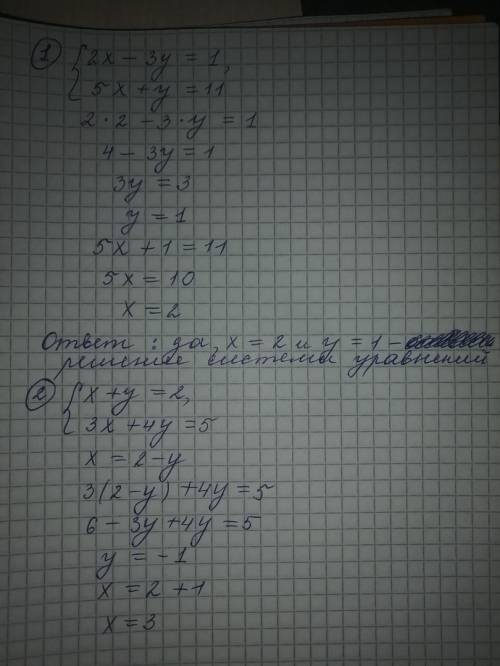 1 { 2x - 3y = 1,
5x + y = 11
2 · 2 - 3 · y = 1
4 - 3y = 1
3y = 3
y = 1
5x + 1 = 11
5x = 10
x = 2
Ответ : да, x = 2 и y = 1 -
решение системы уравнений
2 { x + y = 2,
3x + 4y = 5
x = 2 - y
3(2 - y) + 4y = 5
6 - 3y + 4y = 5
y = -1
x = 2 + 1
x = 3